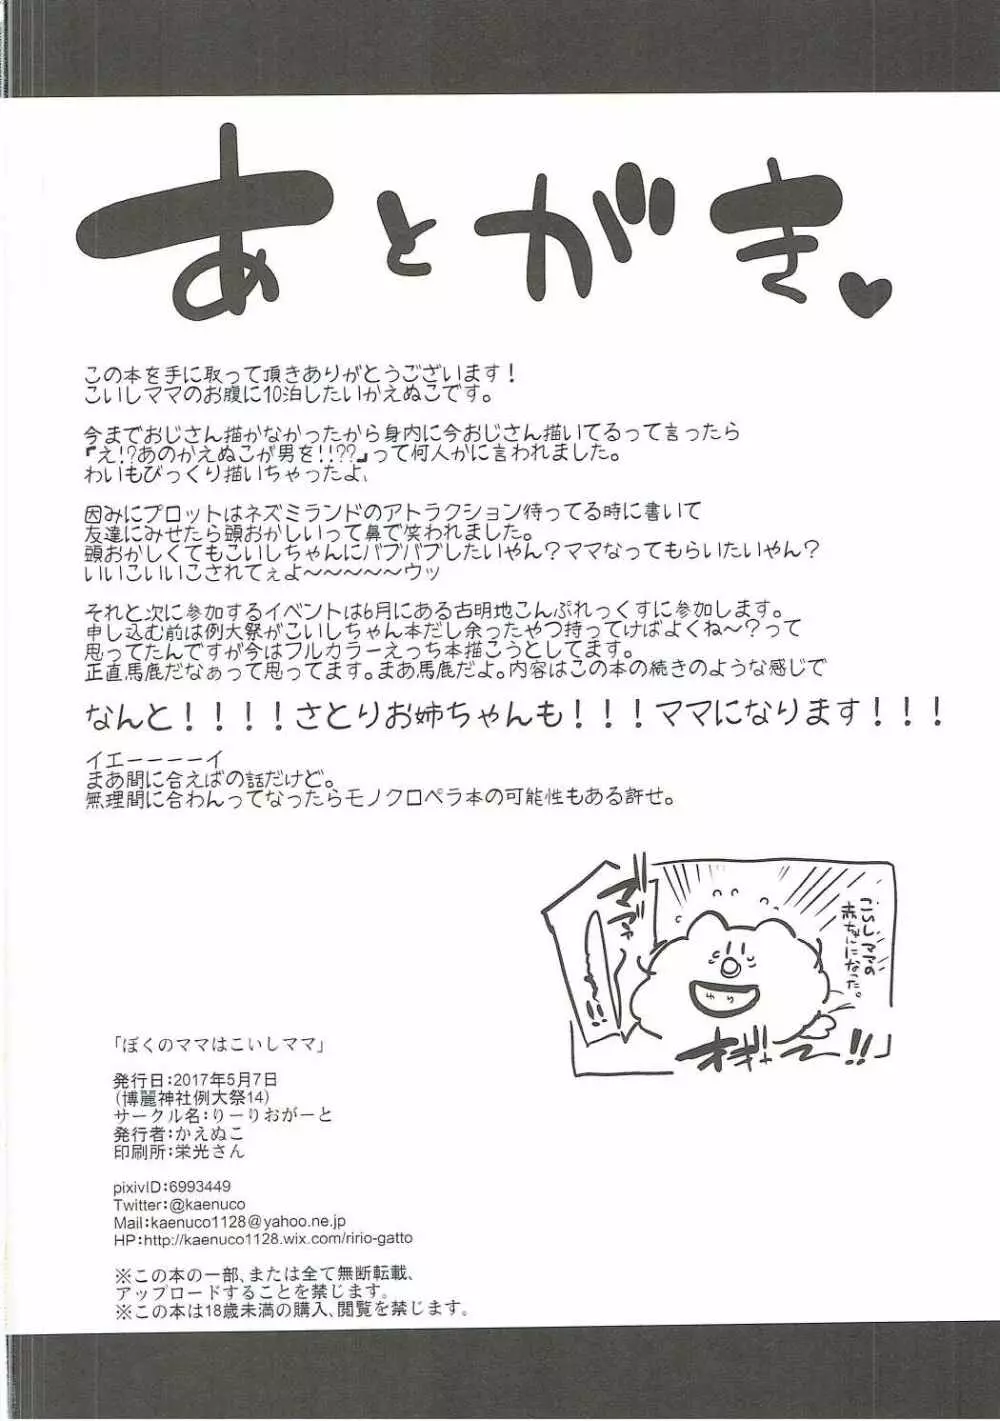 あとがき♥
この本を手に取って頂きありがとうございます！
こいしママのお腹に10泊したいかえぬこです。
今までおじさん描かなかったから身内に今おじさん描いてるって言ったら
『え!?あのかえぬこが男を!!??』って何人かに言われました。
わいもびっくり描いちゃったよ、
因みにプロットはネズミランドのアトラクション待ってる時に書いて
友達にみせたら頭おかしいって鼻で笑われました。
頭おかしくてもこいしちゃんにバブバブしたいやん？ママなってもらいたいやん？
いいこいいこされてぇよ～～～～～ウッ
それと次に参加するイベントは6月にある古明地こんぷれっくすに参加します。
申し込む前は例大祭がこいしちゃん本だし余ったやつ持ってけばよくね～？って
思ってたんですが今はフルカラーえっち本描こうとしてます。
正直馬鹿だなぁって思ってます。まあ馬鹿だよ。内容はこの本の続きのような感じで
なんと！！！！さとりお姉ちゃんも！！！ママになります！！！
イエーーーーイ
まあ間に合えばの話だけど。
無理間に合わんってなったらモノクロペラ本の可能性もある許せ。
こいしママの
赤ちゃんになった。
ママァ
オギャー!!
「ぼくのママはこいしママ」
発行日：2017年5月7日
(博麗神社例大祭14)
サークル名：りーりおがーと
発行者：かえぬこ
印刷所：栄光さん
pixivID:6993449
Twitter:@kaenuco
Mail:kaenuco1128@yahoo.ne.jp
HP:http://kaenuco1128.wix.com/ririo-gatto
※この本の一部、または全て無断転載、
アップロードすることを禁じます。
※この本は18歳未満の購入、閲覧を禁じます。